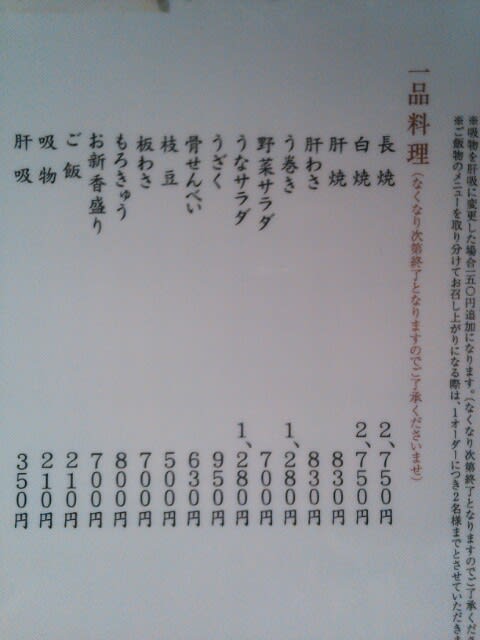 ※吸物を肝吸に変更した場合一五〇円追加になります。(なくなり次第終了となりますのでご了承くださ
※ご飯物のメニューを取り分けてお召し上がりになる際は、1オーダーにつき2名様までとさせていただきま
一品料理(なくなり次第終了となりますのでご了承くださいませ)
長焼 2,750円
白焼 2,750円
肝焼 830円
肝わさ 830円
う巻き 1,280円
野菜サラダ 700円
うなサラダ 1,280円
うざく 950円
骨せんべい 630円
枝豆 500円
板わさ 700円
もろきゅう 800円
お新香盛り 700円
ご飯 210円
吸物 210円
肝吸 350円